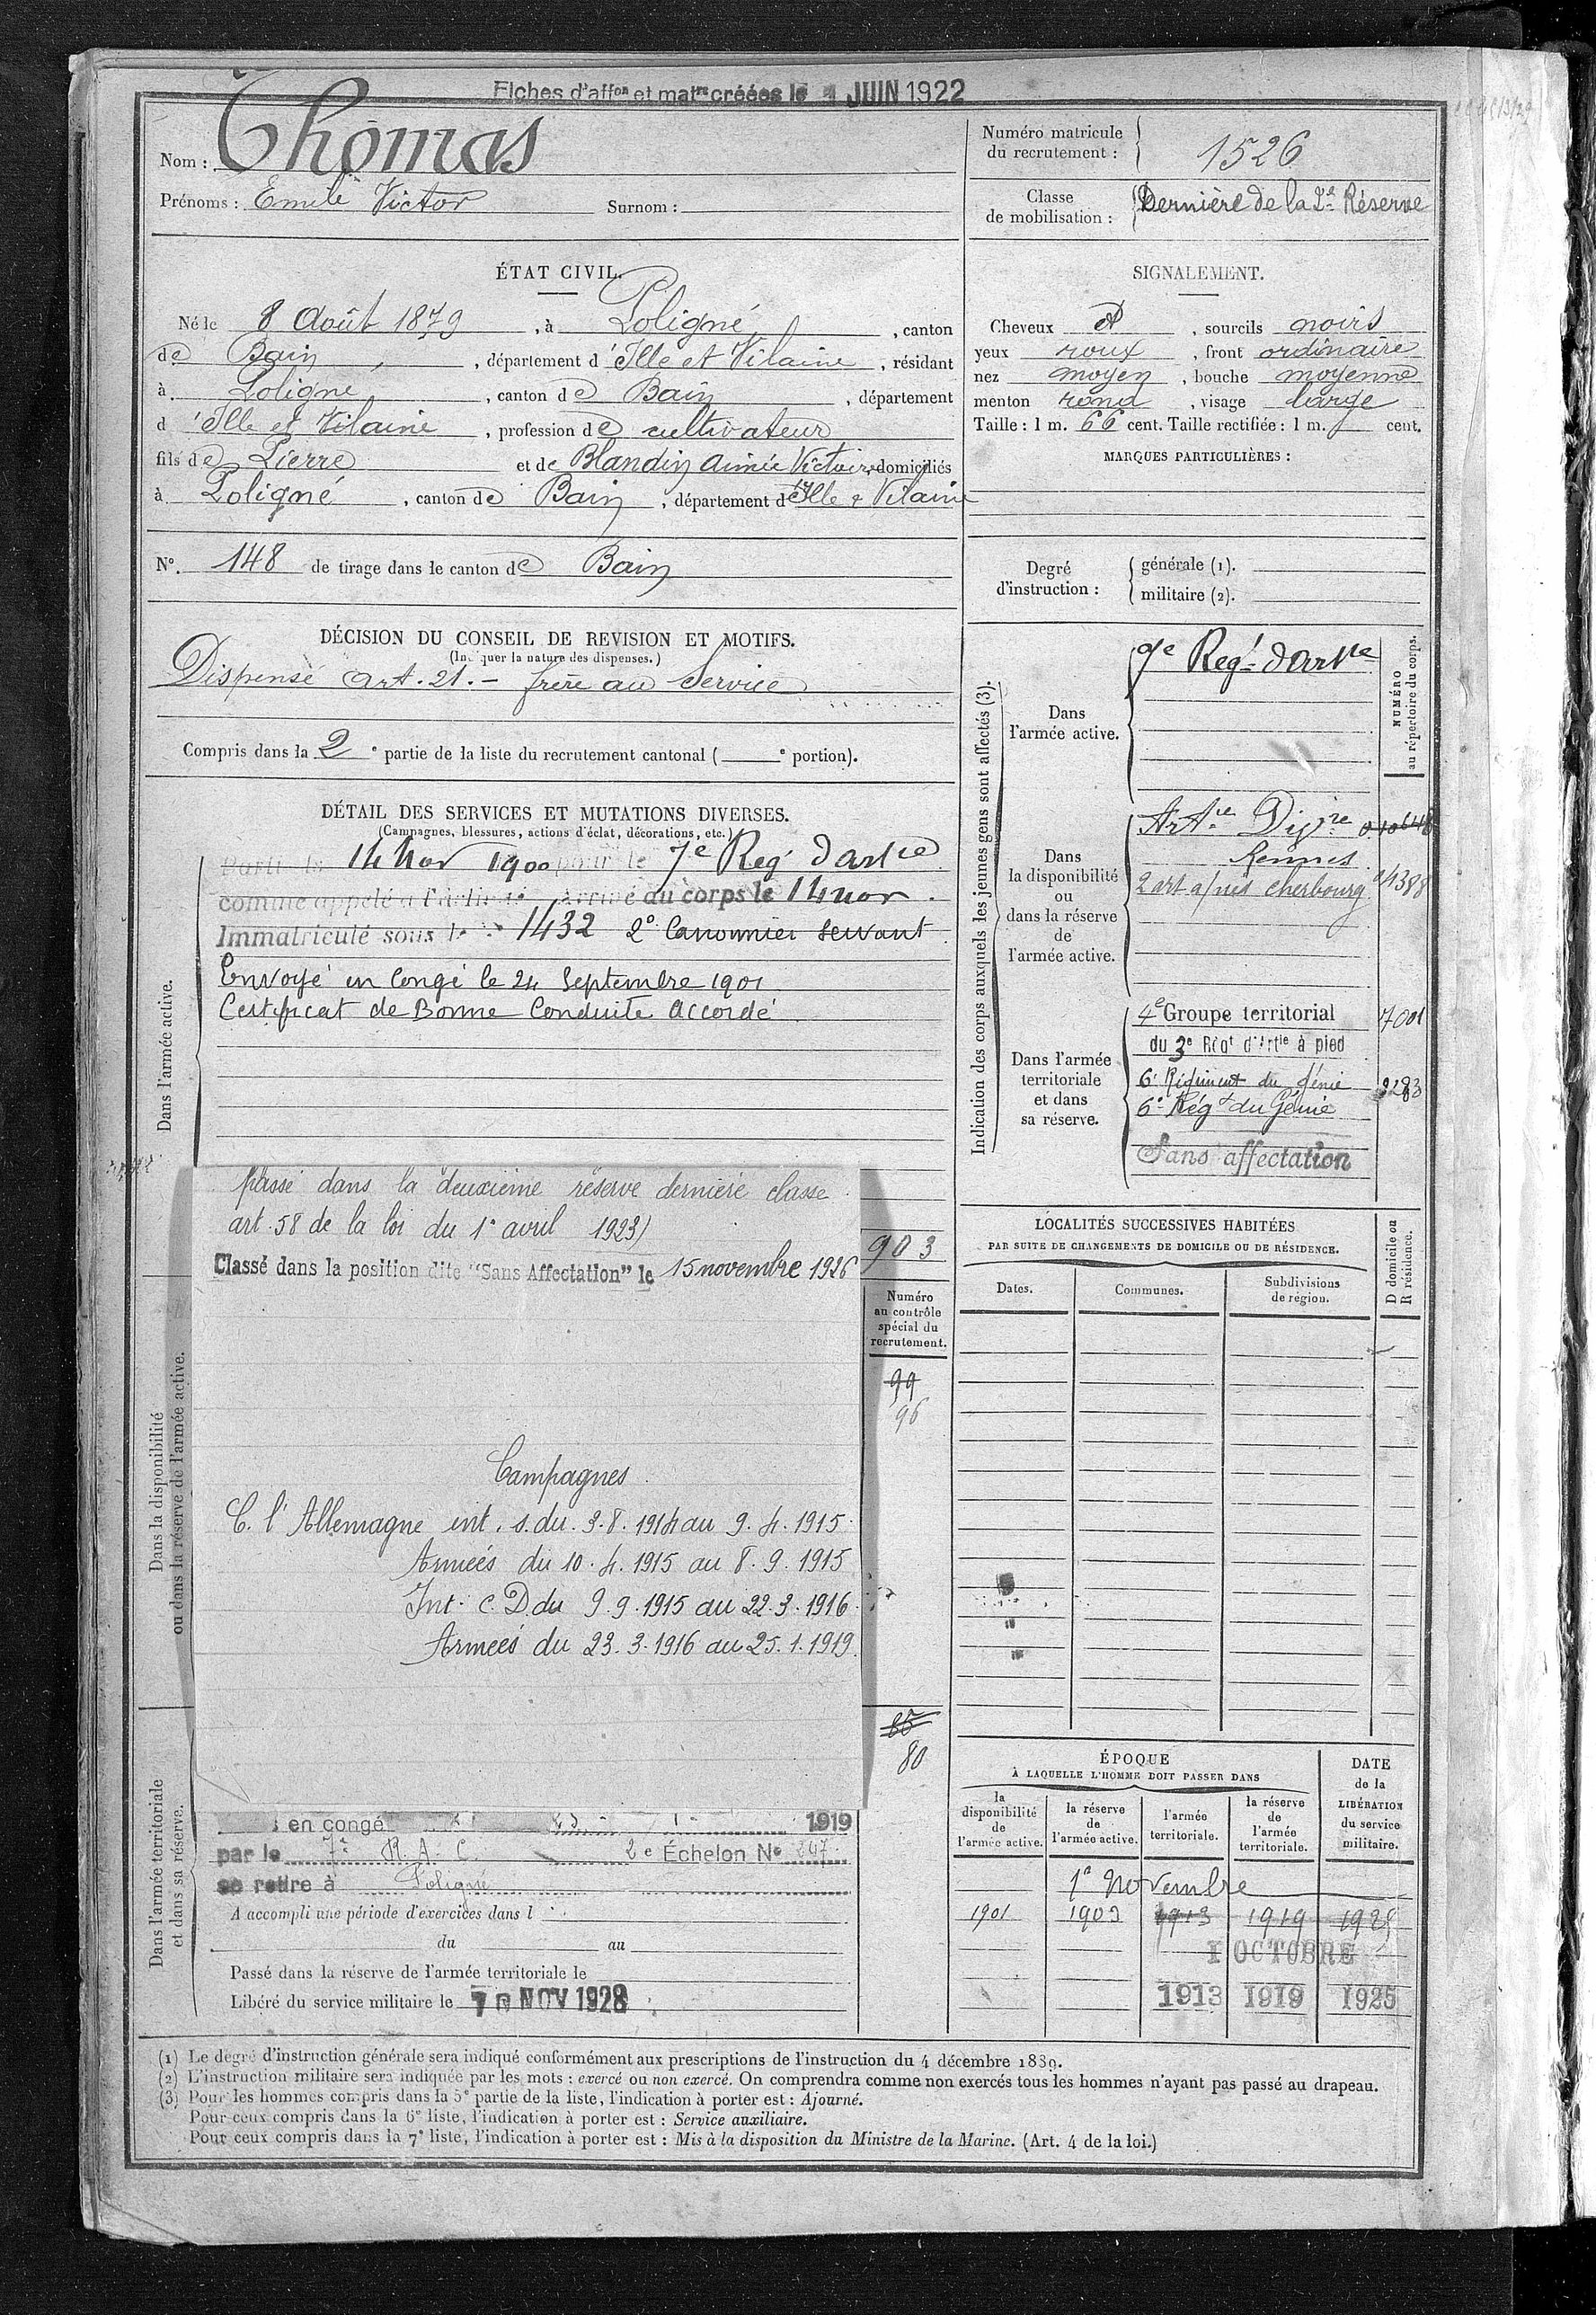 Fiches d'affon et matre créées le 1 JUIN 1922
Nom : Thomas
Prénoms : Emile Victor Surnom :
Numéro matricule du recrutement : 1526
Classe de mobilisation : Dernière de la 2e Réserve
ÉTAT CIVIL.
Né le 8 Août 1879, à Poligné, canton
de Bain, département d'Ille et Vilaine, résidant
à Poligné, canton de Bain, département
d'Ille et Vilaine, profession de cultivateur
fils de Pierre et de Blandin Aimée Victoire, domiciliés
à Poligné, canton de Bain, département d'Ille & Vilaine
N°. 148 de tirage dans le canton de Bain
SIGNALEMENT.
Cheveux et, sourcils noirs
yeux roux, front ordinaire
nez moyen, bouche moyenne
menton rond, visage large
Taille : 1 m. 66 cent. Taille rectifiée : 1 m. cent.
MARQUES PARTICULIÈRES :
Degré d'instruction :
générale (1).
militaire (2).
DÉCISION DU CONSEIL DE REVISION ET MOTIFS.
(Indiquer la nature des dispenses.)
Dispensé art. 21. - frère au Service
Compris dans la 2e partie de la liste du recrutement cantonal ( e portion).
DÉTAIL DES SERVICES ET MUTATIONS DIVERSES.
(Campagnes, blessures, actions d'éclat, décorations, etc.)
Dans l'armée active.
Parti le 14 Nov 1900 pour le 7e Reg' d'artie
comme appelé à l'activité Arrivé au corps le 14 nov.
Immatriculé sous le n° 1432 2e Canonnier servant
Envoyé en Congé le 24 Septembre 1901
Certificat de Bonne Conduite Accordé
passé dans la deuxième réserve dernière classe
art. 58 de la loi du 1e avril 1923)
Classé dans la position dite "Sans Affectation" le 15 novembre 1926
903
Numéro au contrôle spécial du recrutement.
99
96
Dans la disponibilité ou dans la réserve de l'armée active.
Campagnes
C. l'Allemagne int. s. du 3.8.1914 au 9.4.1915
Armées du 10.4.1915 au 8.9.1915
Int. C.D. du 9.9.1915 au 22.3.1916
Armées du 23.3.1916 au 25.1.1919.
85
80
Dans l'armée territoriale et dans sa réserve.
en congé 1919
par le 7e R.A.C. 2e Échelon N° 247
se retire à Poligné
A accompli une période d'exercices dans l
du au
Passé dans la réserve de l'armée territoriale le
Libéré du service militaire le NOV 1928
Indication des corps auxquels les jeunes gens sont affectés (3).
NUMÉRO au répertoire du corps.
Dans l'armée active.
Reg' d'Artie
Dans la disponibilité ou dans la réserve de l'armée active.
Artie Divre 010648
Rennes
2 art a/pied Cherbourg 4388
Dans l'armée territoriale et dans sa réserve.
4e Groupe territorial 7001
du 3e Régt d'Artie à pied
6e Régiment du Génie 3283
6e Régt du Génie
Sans affectation
LOCALITÉS SUCCESSIVES HABITÉES
PAR SUITE DE CHANGEMENTS DE DOMICILE OU DE RÉSIDENCE.
Dates. Communes. Subdivisions de région. D domicile ou R résidence.
ÉPOQUE
À LAQUELLE L'HOMME DOIT PASSER DANS
la disponibilité de l'armée active. la réserve de l'armée active. l'armée territoriale. la réserve de l'armée territoriale.
DATE de la LIBÉRATION du service militaire.
1e Novembre
1901 1903 1913 1919 1925
1 OCTOBRE
1913 1919 1925
(1) Le degré d'instruction générale sera indiqué conformément aux prescriptions de l'instruction du 4 décembre 1889.
(2) L'instruction militaire sera indiquée par les mots : exercé ou non exercé. On comprendra comme non exercés tous les hommes n'ayant pas passé au drapeau.
(3) Pour les hommes compris dans la 5e partie de la liste, l'indication à porter est : Ajourné.
Pour ceux compris dans la 6e liste, l'indication à porter est : Service auxiliaire.
Pour ceux compris dans la 7e liste, l'indication à porter est : Mis à la disposition du Ministre de la Marine. (Art. 4 de la loi.)